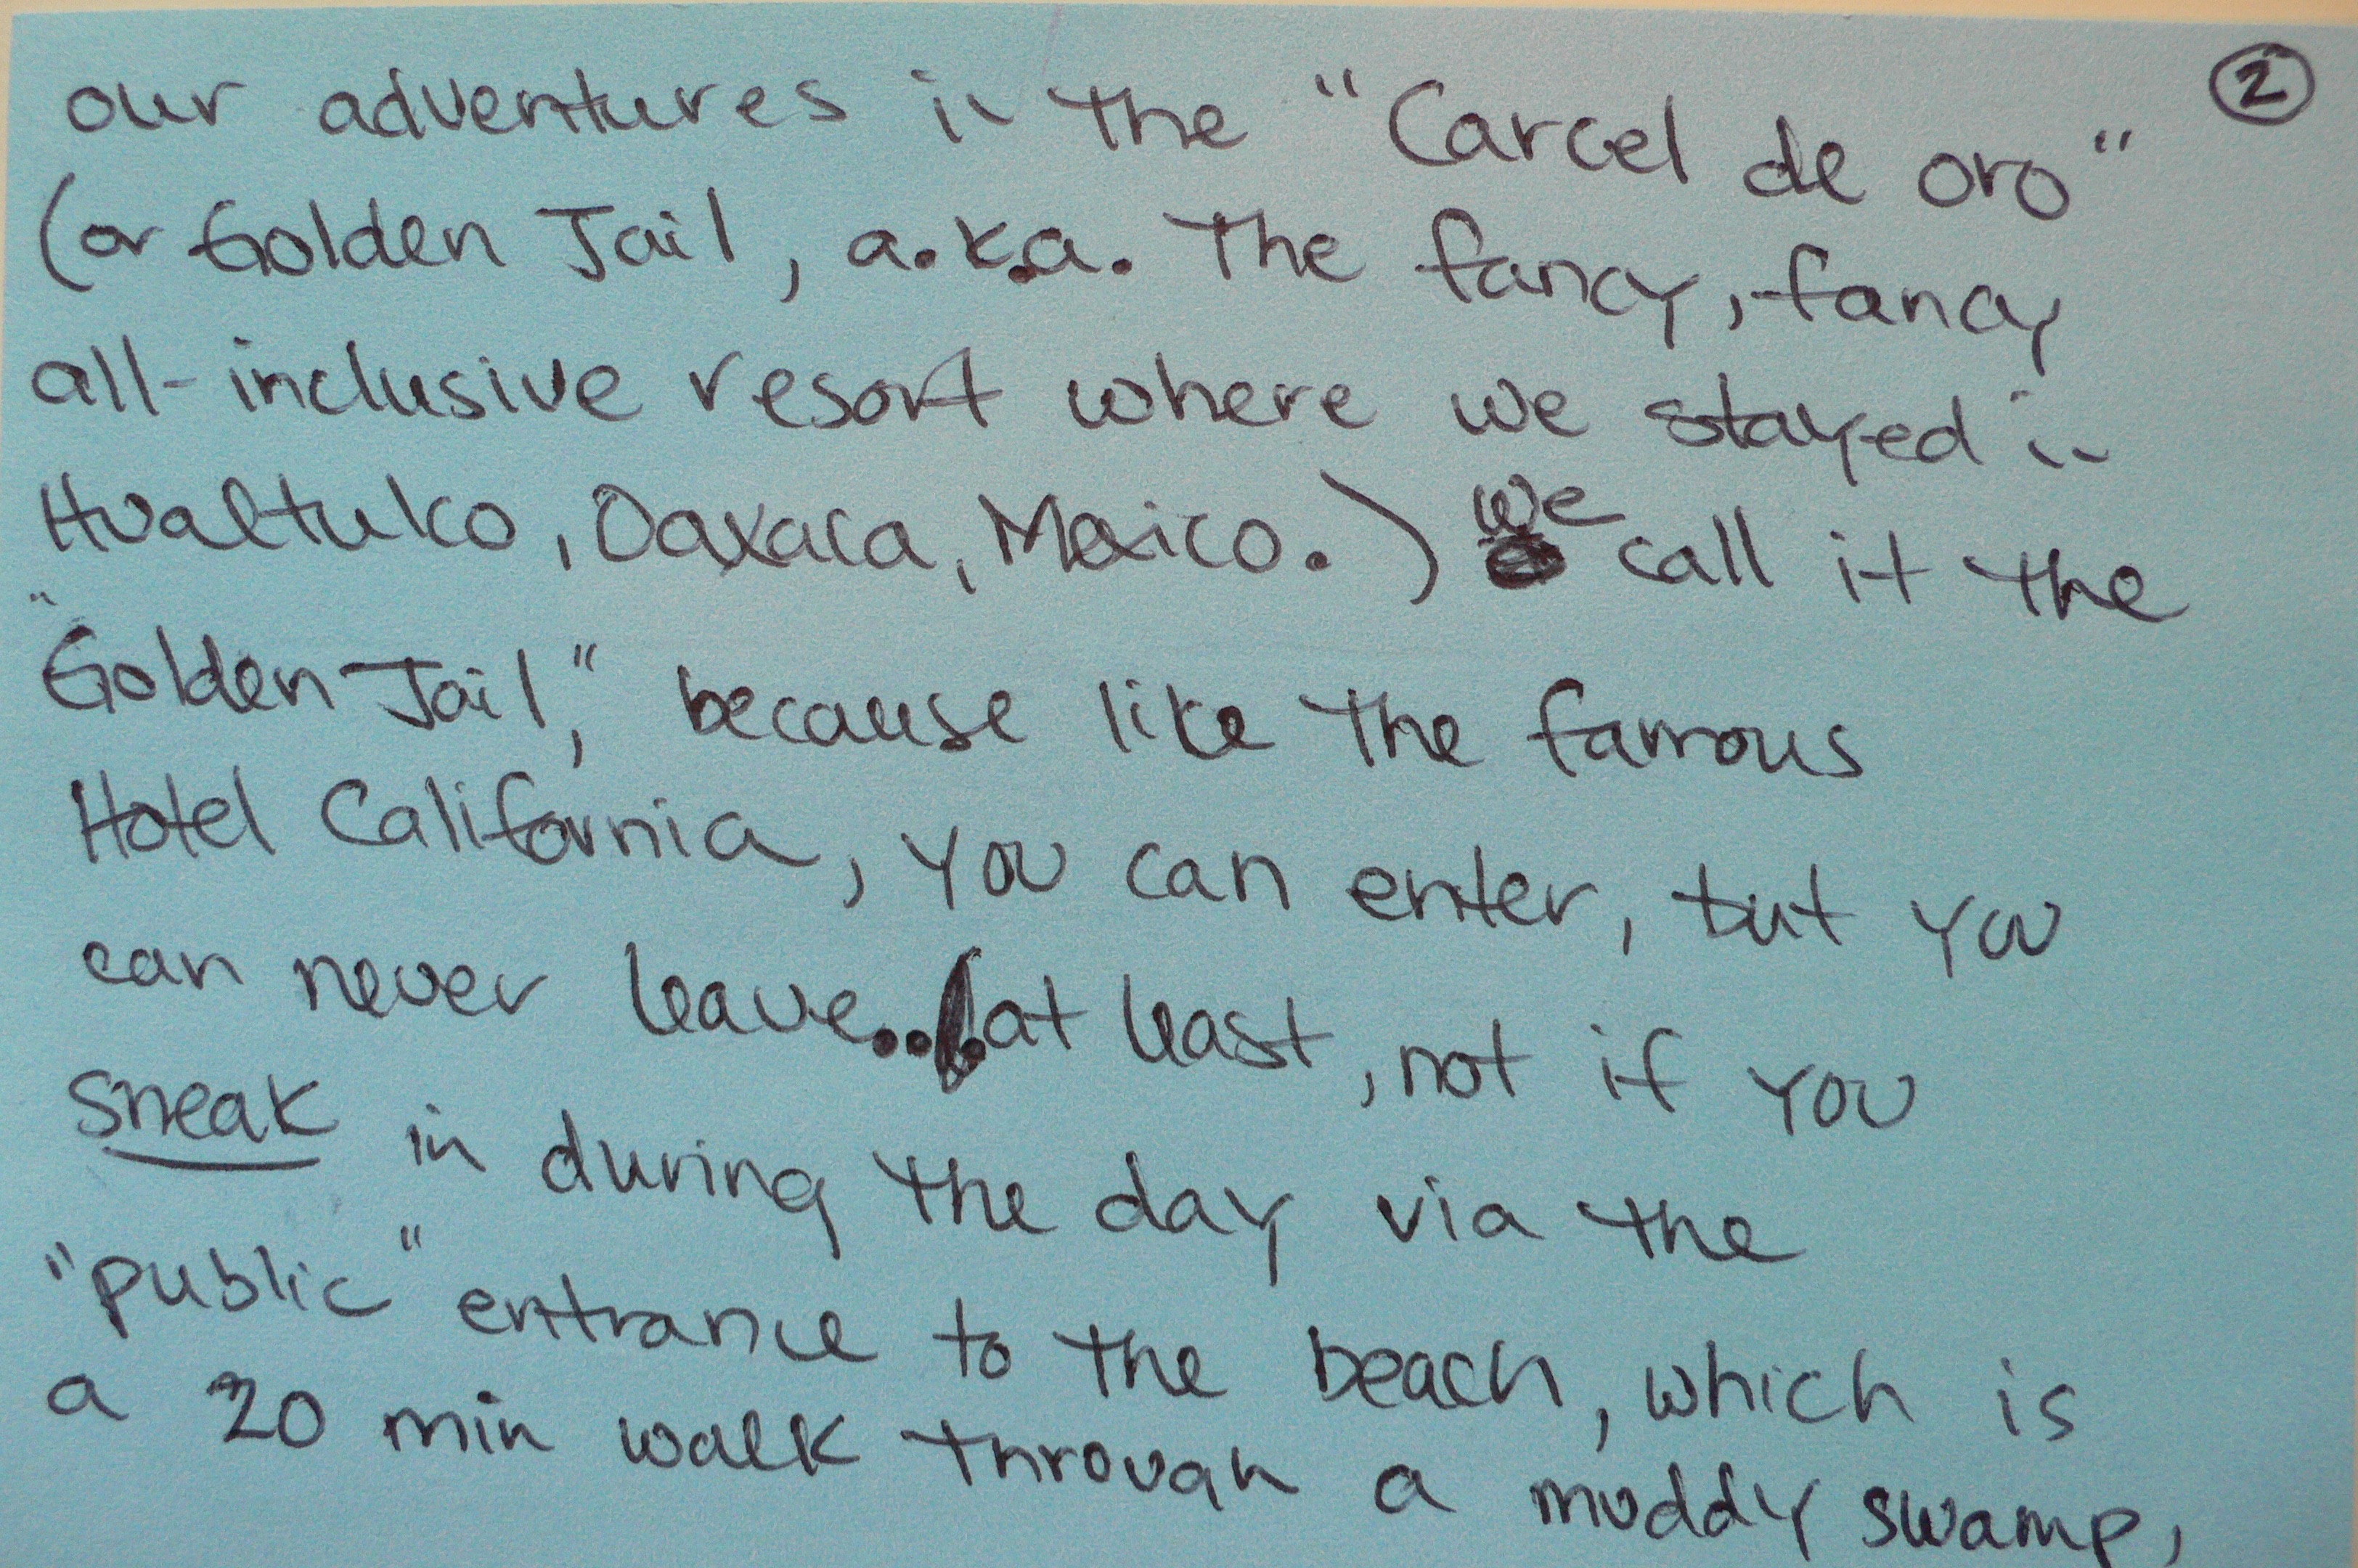 our adventures in the "Carcel de oro" 2
(or Golden Jail, a.k.a. The fancy, fancy
all-inclusive resort where we stayed in
Hualtulco, Oaxaca, Mexico.) We call it the
"Golden Jail," because like the famous
Hotel California, you can enter, but you
can never leave... at least, not if you
sneak in during the day via the
"public" entrance to the beach, which is
a 20 min walk through a muddy swamp,